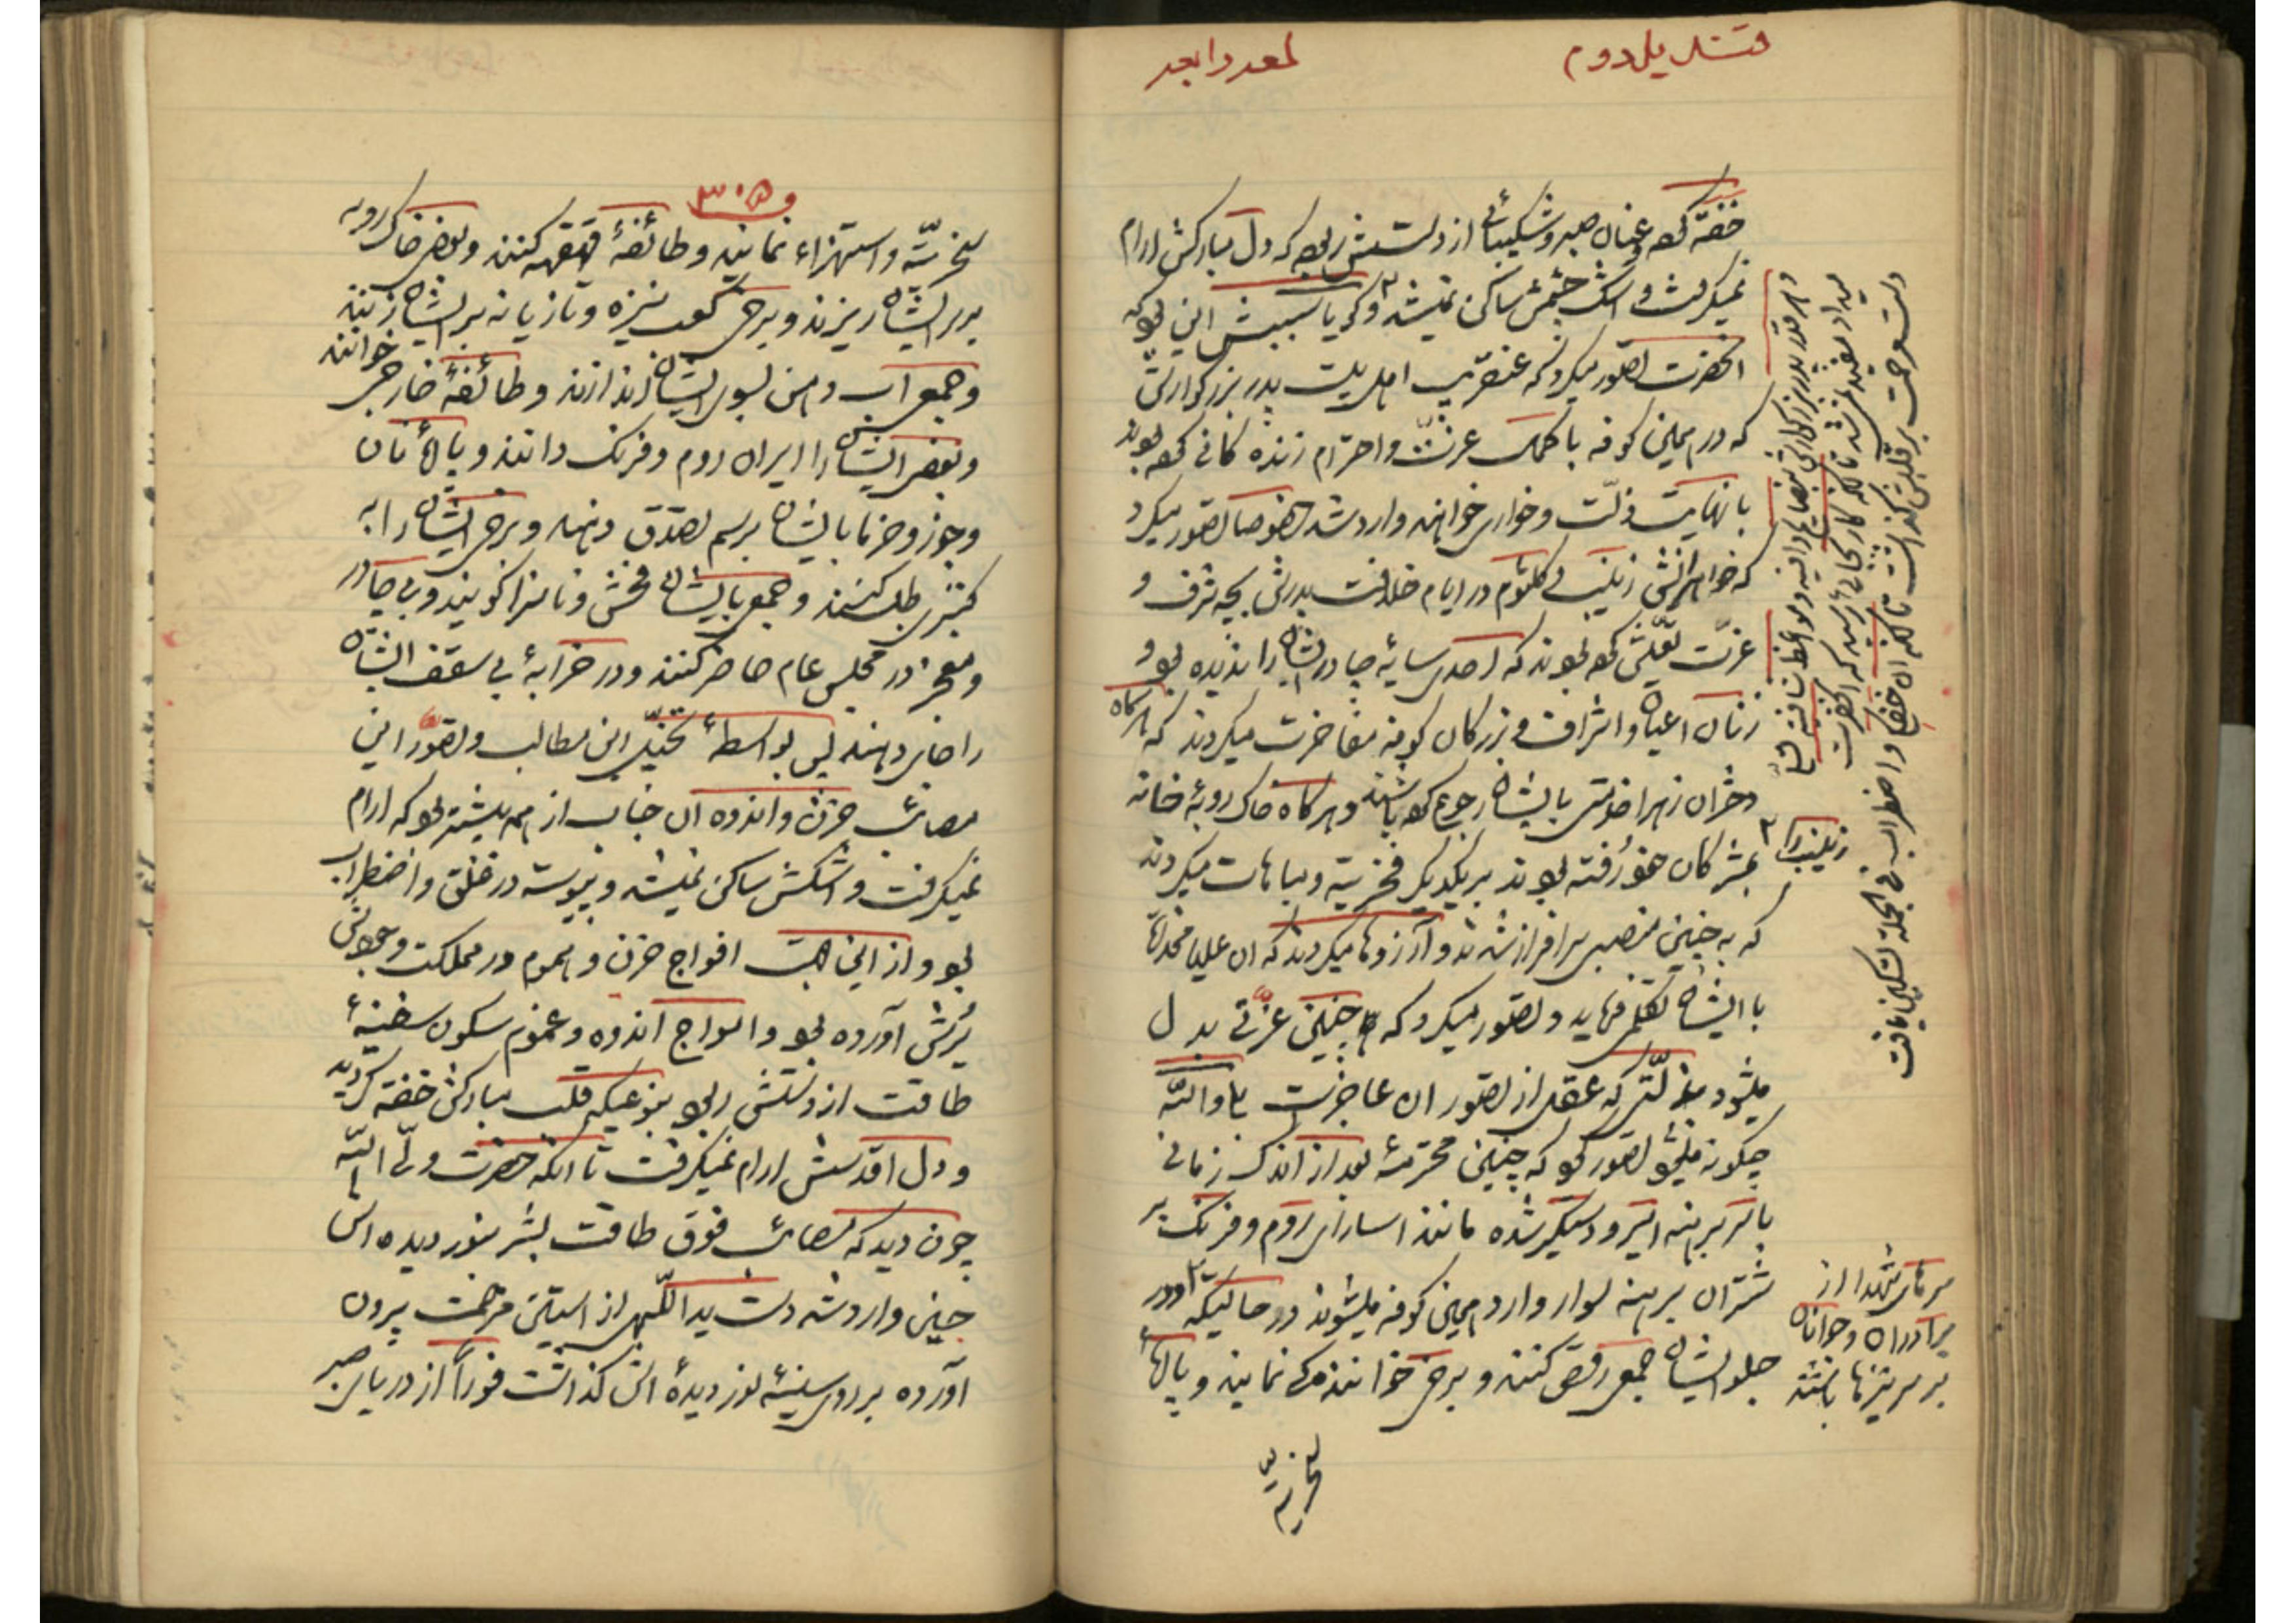 قندیل دوم
لمعه رابعه
خفته کرده و عنان صبر و شکیبائی از دستش ربوده که دل مبارکش ارام
نمیکرفت و اشک چشمش ساکن نمیشد و کویا سببش این بود که
انحضرت تصور میکرد که عنقریب اهل بیت پدر بزرکوارش
که در همین کوفه با کمال عزت و احترام زنده کانی کرده بودند
با نهایت ذلت و خواری خواهند وارد شد خصوصا تصور میکرد
که خواهرانش زینب و کلثوم در ایام خلافت پدرش بچه شرف و
عزت تعیش کرده بودند که احدی سایهٔ چادر ایشان را ندیده بود و
زنان اعیان و اشراف و بزرکان کوفه مفاخرت میکردند که هرکاه
دختران زهرا خدمتی بایشان رجوع کرده باشند و هرکاه خاک روبهٔ خانه
زینب را
بمژکان خود رفته بودند بریکدیکر فخریه و مباهات میکردند
که به چنین منصبی سرافراز شدند و آرزوها میکردند که ان علیا مخدره
با ایشان تکلم نماید و تصور میکرد که چنین عزتی بدل
میشود بذلتی که عقل از تصور ان عاجز است والله
چکونه میشود تصور کرد که چنین محترمهٔ بعد از اندک زمانی
با سر برهنه اسیر و دستکیر شده مانند اسارای روم و فرنک بر
شتران برهنه سوار وارد همین کوفه میشوند در حالتیکه
سرهای شهدا از
برادران و جوانان
بر سر نیزها باشند
جلو ایشان جمعی رقص کنند و برخی خوانندکی نمایند و پارهٔ
سخریه
دست مرحمت بر قلبش کذاشت تا انکه ان خفقان و اضطراب فی الجمله تسکین یافت
۳۰۵
سخریه و استهزاء نمایند و طائفهٔ قهقهه کنند و بعضی خاک روبه
بر سر ایشان ریزند و برخی کعب نیزه و تازیانه بر ایشان زنند
و جمعی آب دهن بسوی ایشان اندازند و طائفهٔ خارجی خوانند
و بعضی ایشان را اسیران روم و فرنک دانند و پارهٔ نان
و جوز و خرما بایشان برسم تصدق دهند و برخی ایشان را به
کنیزی طلب کنند و جمعی بایشان فحش و ناسزا کویند و بی چادر
و معجر در مجلس عام حاضر کنند و در خرابهٔ بی سقف ایشان
را جای دهند پس بواسطهٔ تخیل این مطالب و تصور این
مصائب حزن و اندوه ان جناب از همه بیشتر بود که ارام
نمیکرفت و اشکش ساکن نمیشد و پیوسته در قلق و اضطراب
بود و از این جهت افواج حزن و هموم در مملکت وجودش
یرش آورده بود و امواج اندوه و غموم سکون سفینهٔ
طاقت از دستش ربود بنوعیکه قلب مبارکش خفه کردید
و دل اقدسش ارام نمیکرفت تا انکه حضرت ولی الله
چون دید که مصائب فوق طاقت بشر بنور دیده اش
حسین وارد شد دست ید اللهی از استین مرحمت بیرون
آورده بر روی سینهٔ نور دیدهٔ اش کذاشت فوراً از دریای صبر